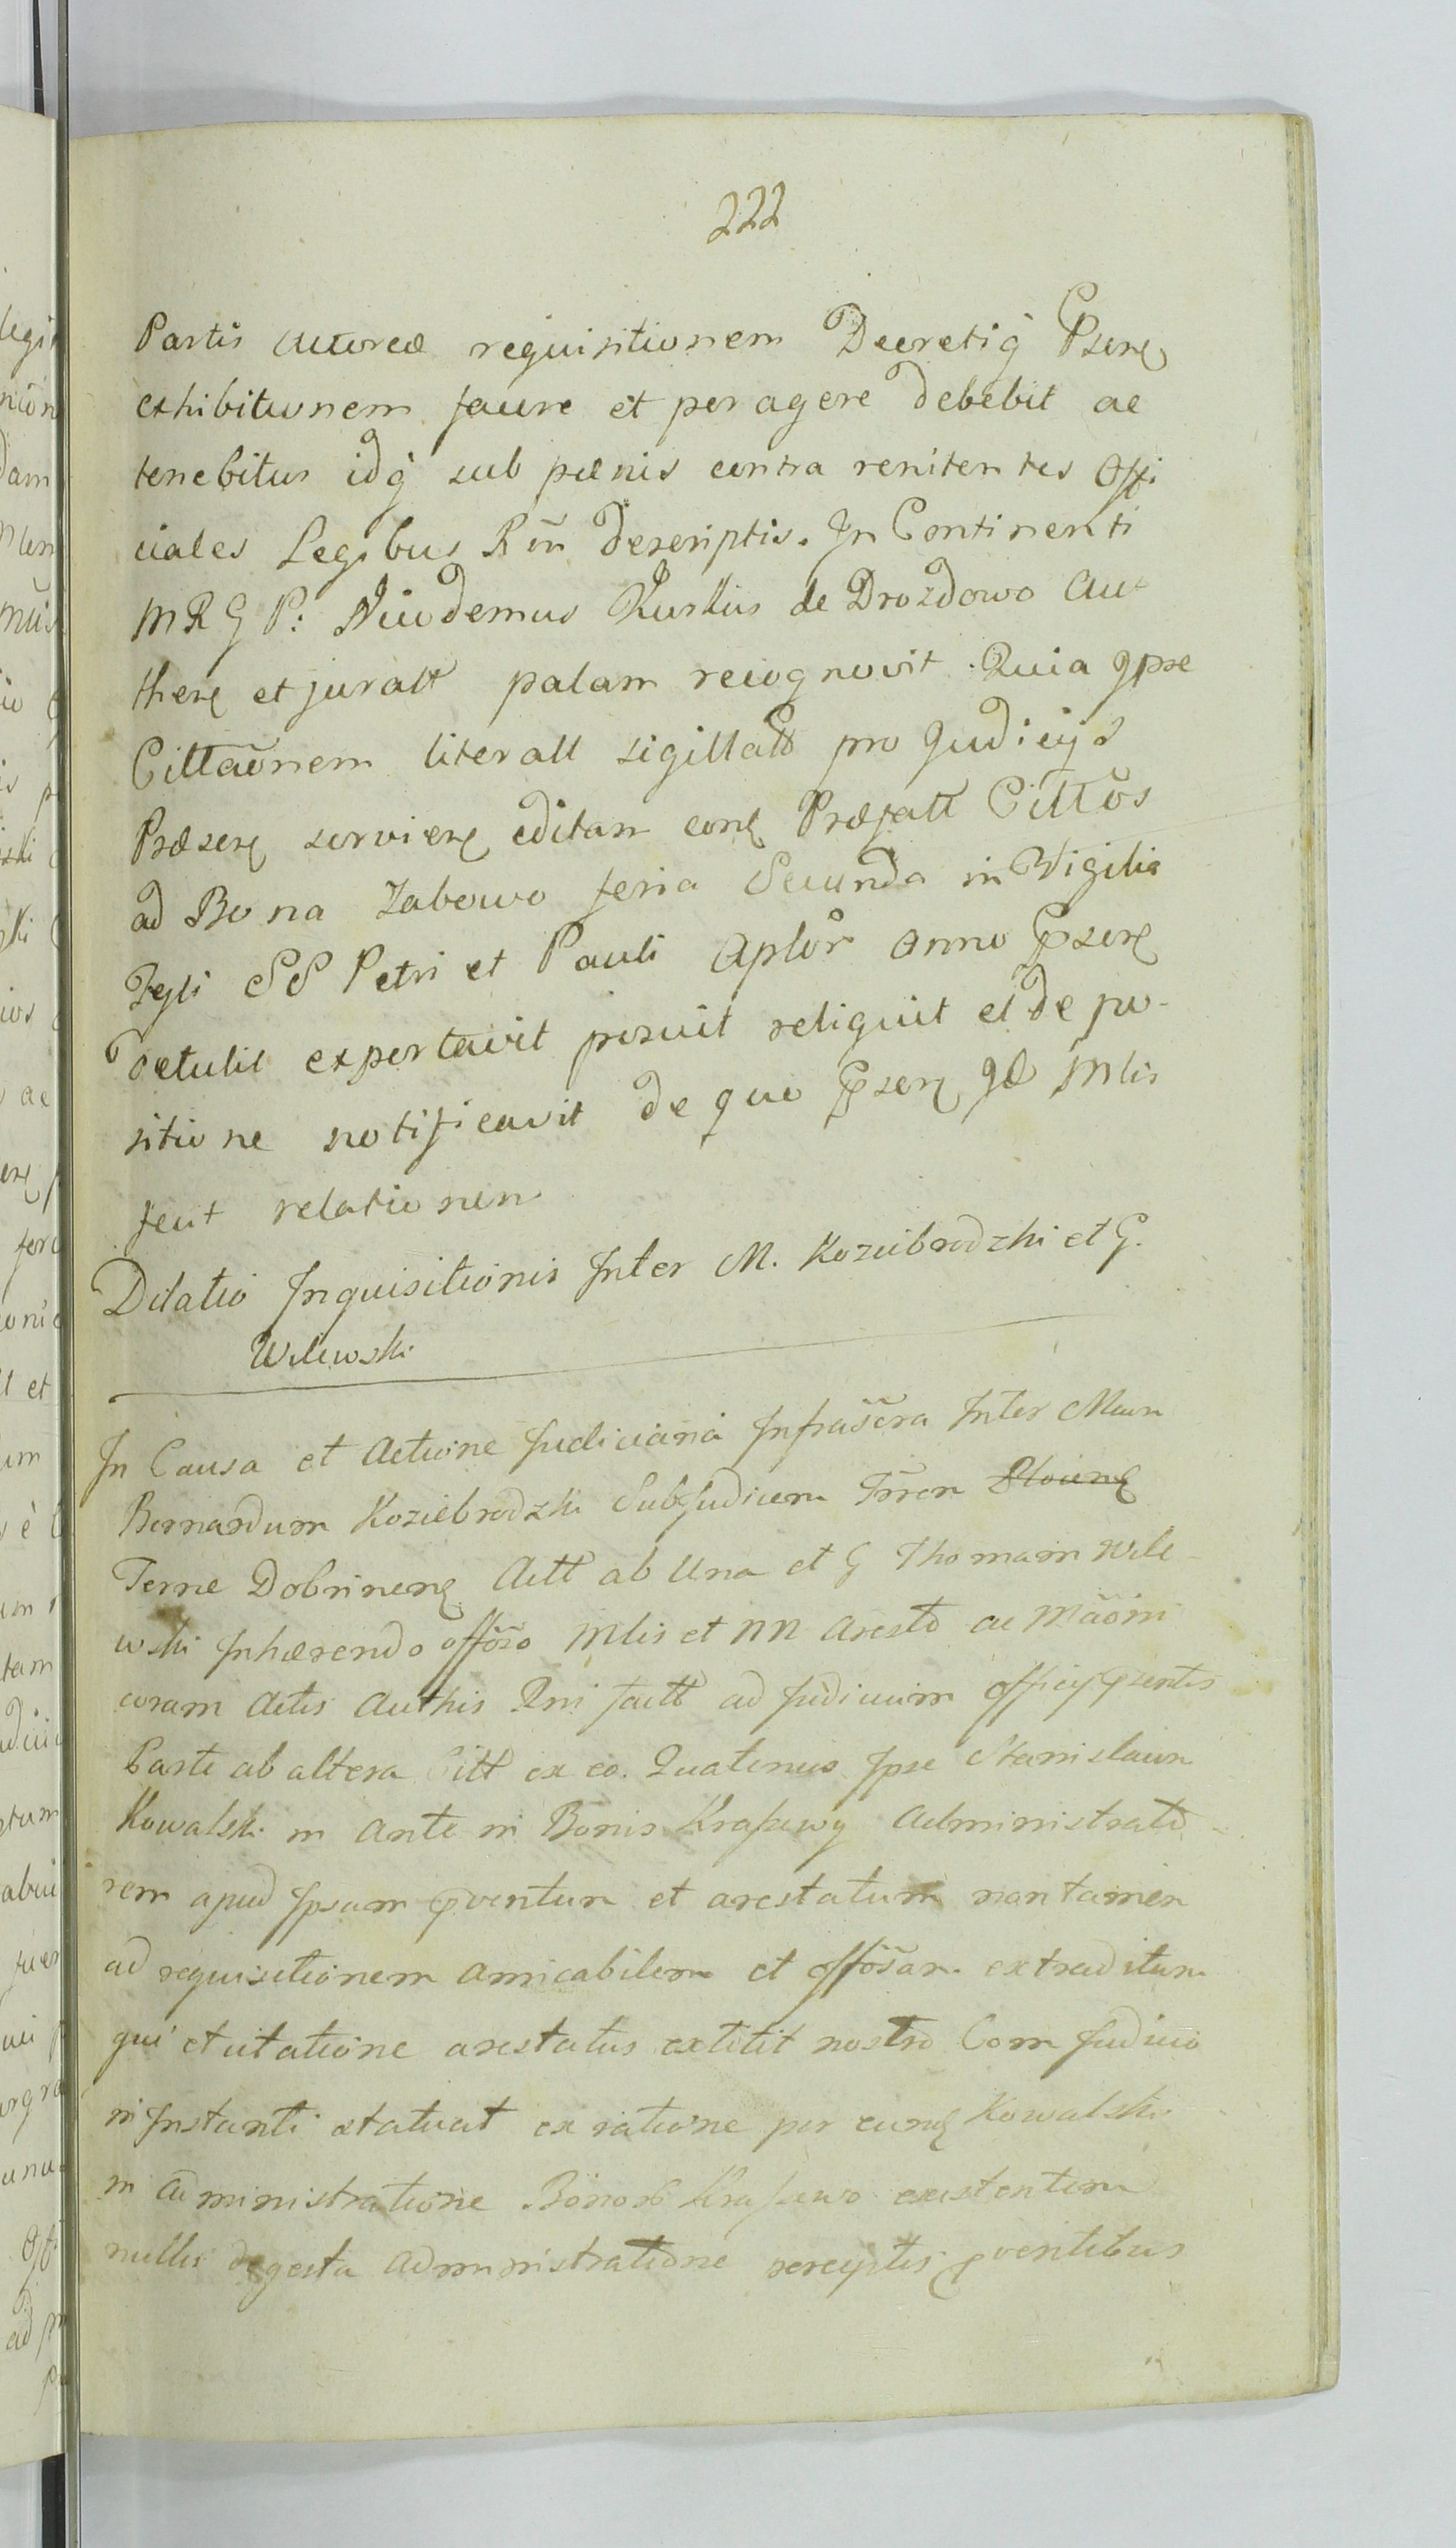 222
Partis Actoreæ requisitionem Decretiq́ Psenę
exhibitionem facere et peragere debebit ac
tenebitur idq́ sub pænis contra renitentes Offi
ciales Legibus Rñi descriptis. In Continenti
MRGP: Nicodemus Rustius de Drozdowo Au-
thenę et juratt palam recognovit. Quia
Cittãonem literall sigillatt pro Judicijs
Præsenę servienę editam Præfatt Cittõs
ad Bona Zabowo feria Secunda in Vigilia
Festi SS Petri et Pauli Aplõr Anno Psenę
detulit exportavit posuit reliquit et de po-
sitione notificavit de quo Psenę Mlis
fecit relationem
Dilatio Inquisitionis Inter M. Koziebrodzki et G.
Wilewski
In Causa et Actione Judiciaria Infrascra Inter Mcum
Bernardum Koziebrodzki SubJudicem Trrem
Terræ Dobrinenę Actt ab Una et G Thomam Wile
wski Inhærendo offõso Mlis et NN Arestõ ac Mãoni
coram Actis Authis Pni factt ad Judicium Officij Psentis
Parte ab altera Citt ex eo. Quatenus Ipse Stanislaum
Kowalski in Ante in Bonis Administrato
rem apud Ipsum pventum et arestatum nontamen
ad requisitionem amicabilem et offõsam extraditum
qui et citatione arestatus extitit nostro Com Judicio
in Instanti statuat ex ratione per eunę Kowalski
in Administratione Bonor existentem
nullis degesta Administratione perceptis pventibus